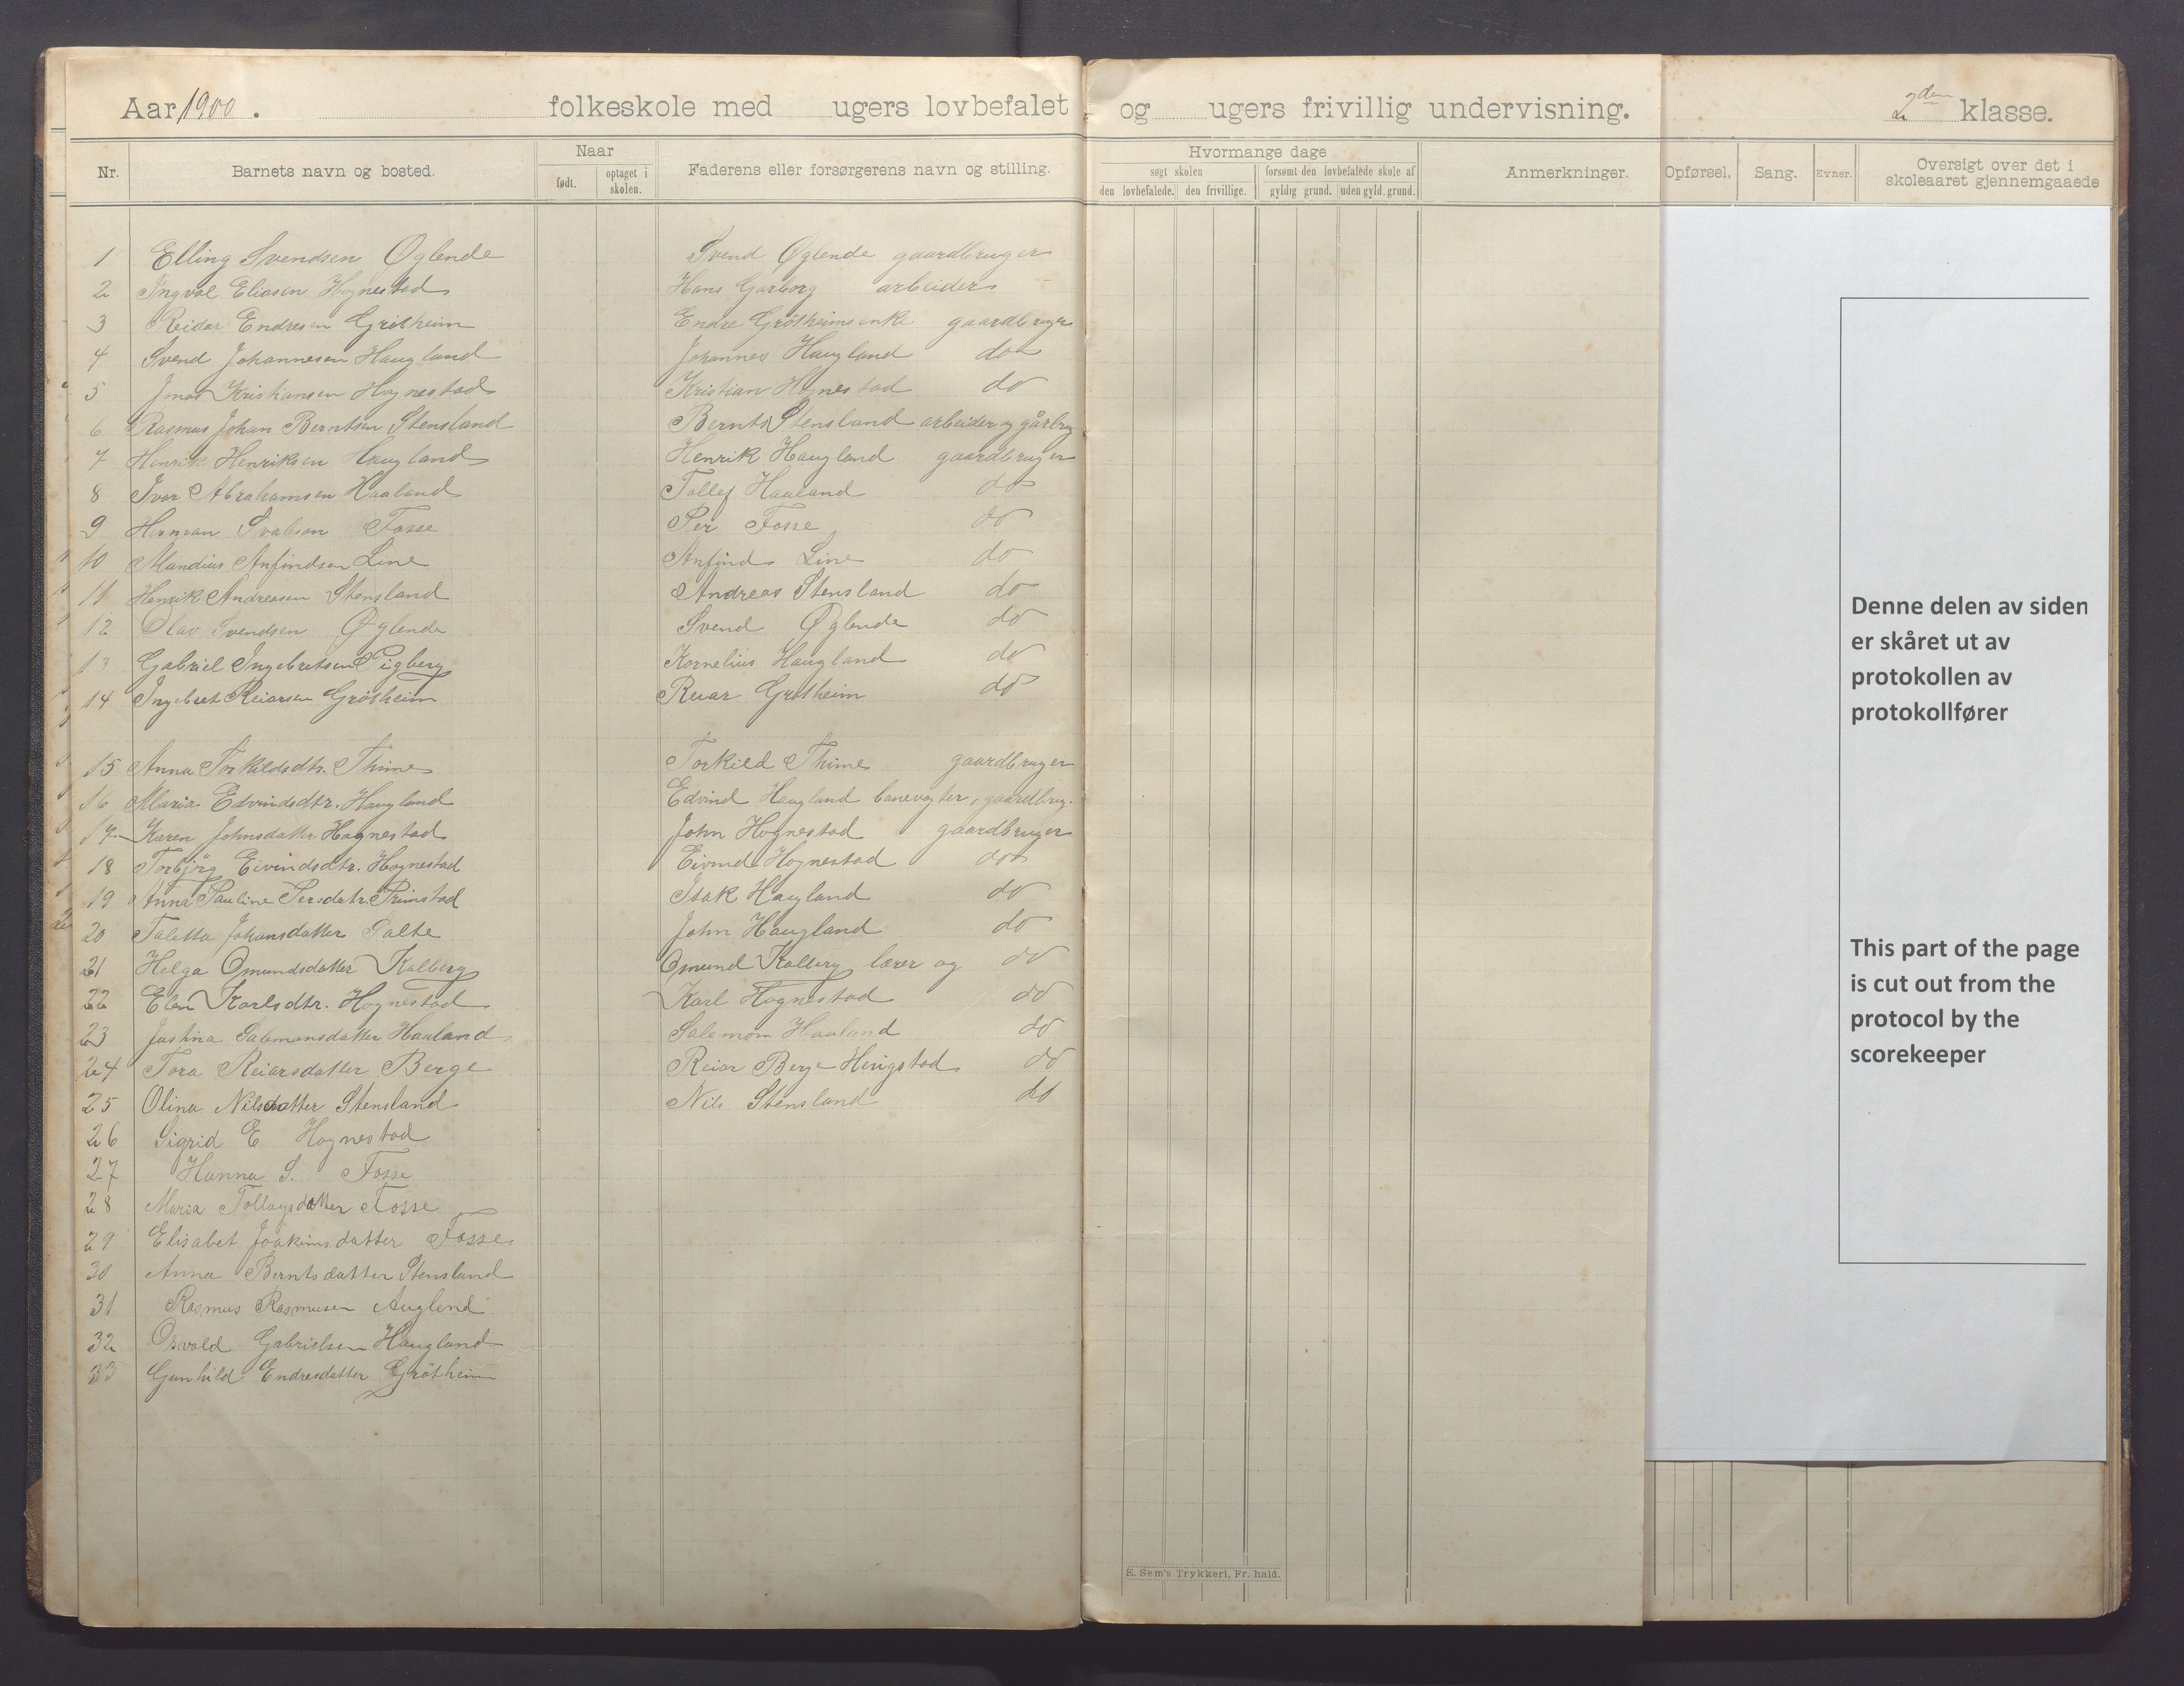 Aar 1900. folkeskole med ugers lovbefalet og ugers frivillig undervisning. 2den klasse.
Nr. Barnets navn og bosted. Naar Faderens eller forsørgerens navn og stilling. Hvormange dage Anmerkninger. Opførsel, Sang. Evner. Oversigt over det i skoleaaret gjennemgaaede
født. optaget i skolen. søgt skolen forsømt den lovbefalede skole af
den lovbefalede. den frivillige. gyldig grund. uden gyld. grund.
1 Elling Svendsen Øglende Svend Øglende gaardbruger
2 Ingval Eliasen Hognestad Hans Garborg arbeider
3 Reidar Endresen Grötheim Endre Grötheims enke gaardbruger
4 Svend Johannesen Haugland Johannes Haugland do
5 Jonas Kristiansen Hognestad Kristian Hognestad do
6 Rasmus Johan Berntsen Stensland Bernt Stensland arbeider og gårbrug
7 Henrik Henriksen Haugland Henrik Haugland gaardbruger
8 Ivar Abrahamsen Haaland Tollef Haaland do
9 Herman Fosse Per Fosse do
10 Mandius Anfindsen Line Anfind Line do
11 Henrik Andreasen Stensland Andreas Stensland do
12 Olav Svendsen Øglende Svend Øglende do
13 Gabriel Ingebretsen Kornelius Haugland do
14 Ingebret Reiarsen Grötheim Reiar Grötheim do
15 Anna Torkildsdtr. Thime Torkild Thime gaardbruger
16 Maria Edvindsdtr. Haugland Edvind Haugland banevogter, gaardbrug.
17 Karen Johnsdatter Hognestad John Hognestad gaardbruger
18 Torbjörg Eivindsdtr. Hognestad Eivind Hognestad do
19 Anna Pauline Persdatr. Primstad Isak Haugland do
20 Taletta Johansdatter John Haugland do
21 Helga Omundsdatter Kalberg Omund Kalberg lærer og do
22 Elen Karlsdtr. Hognestad Karl Hognestad do
23 Justina Salemonsdatter Haaland Salemon Haaland do
24 Tora Reiarsdatter Berge Reiar Berge do
25 Olina Nilsdatter Stensland Nils Stensland do
26 Sigrid E Hognestad
27 Hanna S. Fosse
28 Maria Fosse
29 Elisabet Joakimsdatter Fosse
30 Anna Berntsdatter Stensland
31 Rasmus Rasmusen Auglend
32 Osvald Gabrielsen Haugland
33 Gunhild Endresdatter Grötheim
Denne delen av siden
er skåret ut av
protokollen av
protokollfører
This part of the page
is cut out from the
protocol by the
scorekeeper
E. Sem's Trykkeri, Fr. hald.